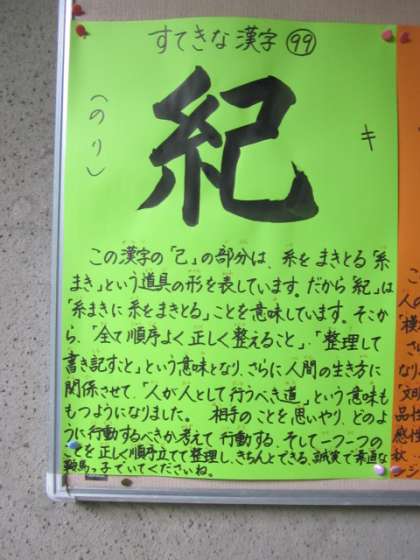 すてきな漢字 99
紀
キ
(のり)
この漢字の「己」の部分は、糸をまきとる「糸
まき」という道具の形を表しています。だから「紀」は
「糸まきに糸をまきとる」ことを意味しています。そこか
ら、「全て順序よく正しく整えること」・「整理して
書き記すこと」という意味となり、さらに人間の生き方に
関係させて、「人が人として行うべき道」という意味も
もつようになりました。 相手のことを思いやり、どのよ
うに行動するべきか考えて行動する、そして一つ一つの
ことを正しく順序立てて整理し、きちんとできる、誠実で素直な
鞍馬っ子でいてくださいね。